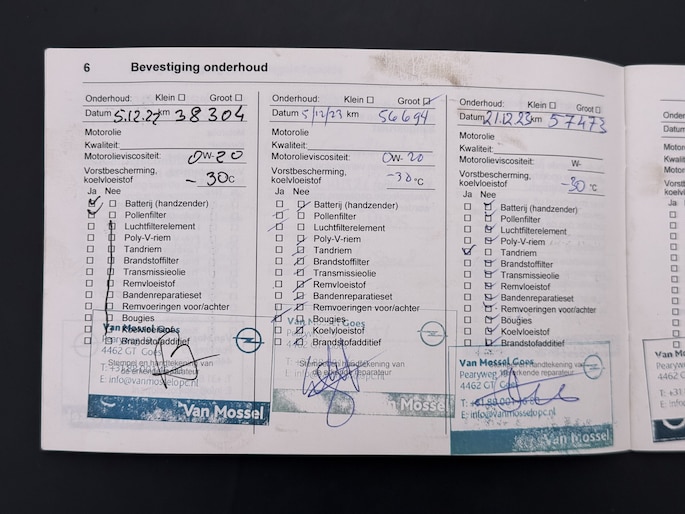 6 Bevestiging onderhoud
Onderhoud: Klein ☐ Groot ☐
Datum 5.12.22 km 38304
Motorolie
Kwaliteit:
Motorolieviscositeit: 0W-20
Vorstbescherming,
koelvloeistof -30°C
Ja Nee
Batterij (handzender)
Pollenfilter
Luchtfilterelement
Poly-V-riem
Tandriem
Brandstoffilter
Transmissieolie
Remvloeistof
Bandenreparatieset
Remvoeringen voor/achter
Bougies
Koelvloeistof
Brandstofadditief
Van Mossel Goes
4462 GT Goes
Stempel en handtekening van
de erkende reparateur
E: info@vanmosselopel.nl
Van Mossel
Onderhoud: Klein ☐ Groot ☑
Datum 5/12/23 km 56694
Motorolie
Kwaliteit:
Motorolieviscositeit: 0W-20
Vorstbescherming,
koelvloeistof -30°C
Ja Nee
Batterij (handzender)
Pollenfilter
Luchtfilterelement
Poly-V-riem
Tandriem
Brandstoffilter
Transmissieolie
Remvloeistof
Bandenreparatieset
Remvoeringen voor/achter
Bougies
Koelvloeistof
Brandstofadditief
Goes
Stempel en handtekening van
reparateur
Van Mossel
Onderhoud: Klein ☐ Groot ☐
Datum 21.12.23 km 57473
Motorolie
Kwaliteit:
Motorolieviscositeit: W-
Vorstbescherming,
koelvloeistof -30 °C
Ja Nee
Batterij (handzender)
Pollenfilter
Luchtfilterelement
Poly-V-riem
Tandriem
Brandstoffilter
Transmissieolie
Remvloeistof
Bandenreparatieset
Remvoeringen voor/achter
Bougies
Koelvloeistof
Brandstofadditief
Van Mossel Goes
Pearyweg
4462 GT Goes
Van Mossel